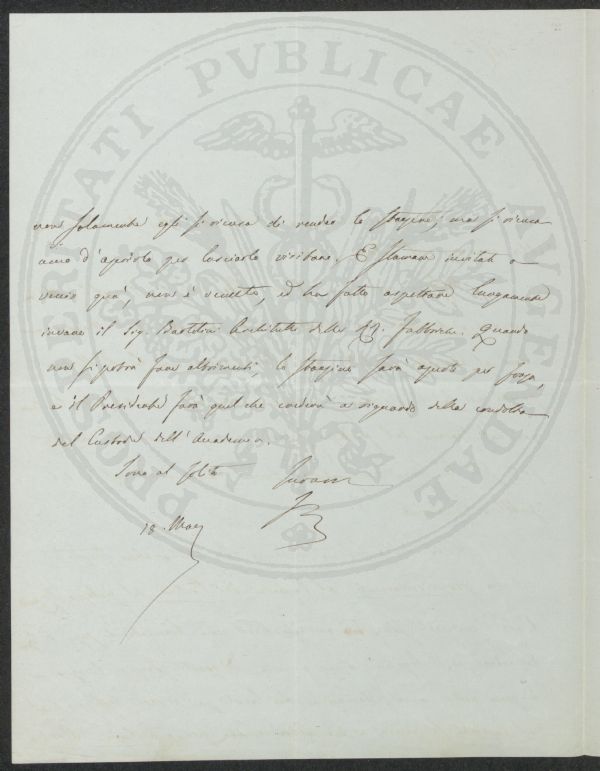 PROSPERITATI PVBLICAE AVGENDAE
non solamente egli si ricusa di rendere lo stagione, ma si ricusa
anco d'aprirlo per lasciarlo visitare. E stamane invitato a
venir quà, non è venuto, ed ha fatto aspettare lungamente
invano il Sig. Bartolini Architetto delle RR. Fabbriche. Quando
non si potrà fare altrimenti, lo stagione sarà aperto per forza,
e il Presidente farà quel che crederà a riguardo della condotta
del Custode dell'Accademia.
Sono al solito
18. Mag